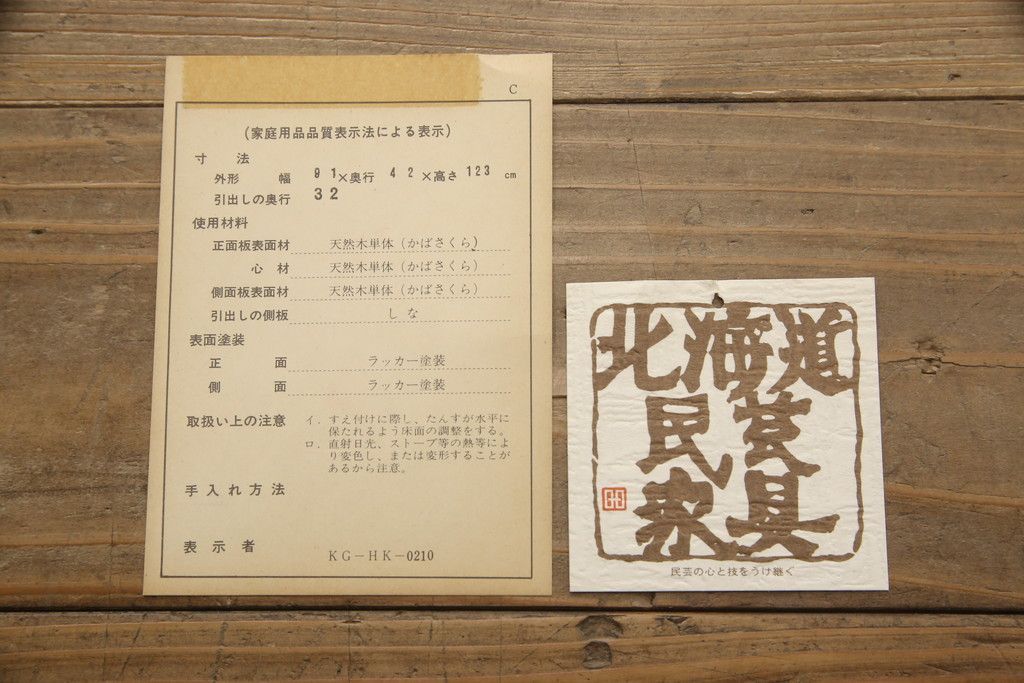 C
(家庭用品品質表示法による表示)
寸 法
外形 幅 91×奥行 42×高さ 123 cm
引出しの奥行 32
使用材料
正面板表面材 天然木単体(かばさくら)
心材 天然木単体(かばさくら)
側面板表面材 天然木単体(かばさくら)
引出しの側板 しな
表面塗装
正 面 ラッカー塗装
側 面 ラッカー塗装
取扱い上の注意 イ. すえ付けに際し、たんすが水平に
保たれるよう床面の調整をする。
ロ. 直射日光、ストーブ等の熱等によ
り変色し、または変形することが
あるから注意。
手入れ方法
表 示 者 KG-HK-0210
北海道
民芸
家具
民芸の心と技をうけ継ぐ